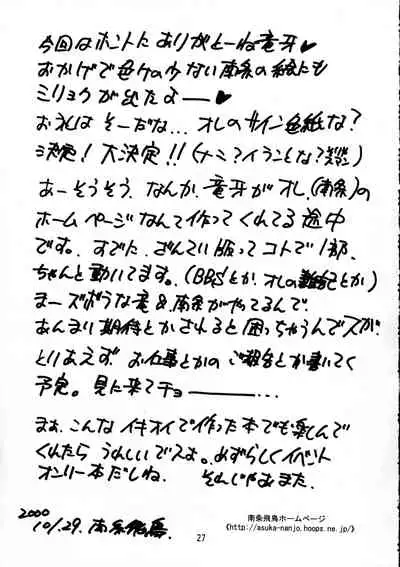 今回はホントにありがとーね竜牙♥
おかげで色ケの少ない南条の絵にも
ミリョウが出たよ——♥
お礼は そーだな...オレのサイン色紙な?
決定! 大決定!! (ナニ?イランとな?
あーそうそう、なんか、竜牙がオレ(南条)の
ホームページなんて作ってくれてる途中
です。すでに、ざんてい版ってコトで1部、
ちゃんと動いてます。(BBSとか、オレの とか)
まーズボラな竜&南条がやってるんで
あんまり期待とかされると困っちゃうんでスが、
とりあえず お仕事とかの ご報告とか書いてく
予定。見に来てチョ———...
まぁ、こんなイキオイで作った本でも楽しんで
くれたら うれしいでスよ。めずらしくイベント
オンリー本だしね。 それじゃあまた.
2000
10/.29. 南条飛鳥.
27
南条飛鳥ホームページ
《http://asuka-nanjo.hoops.ne.jp/》